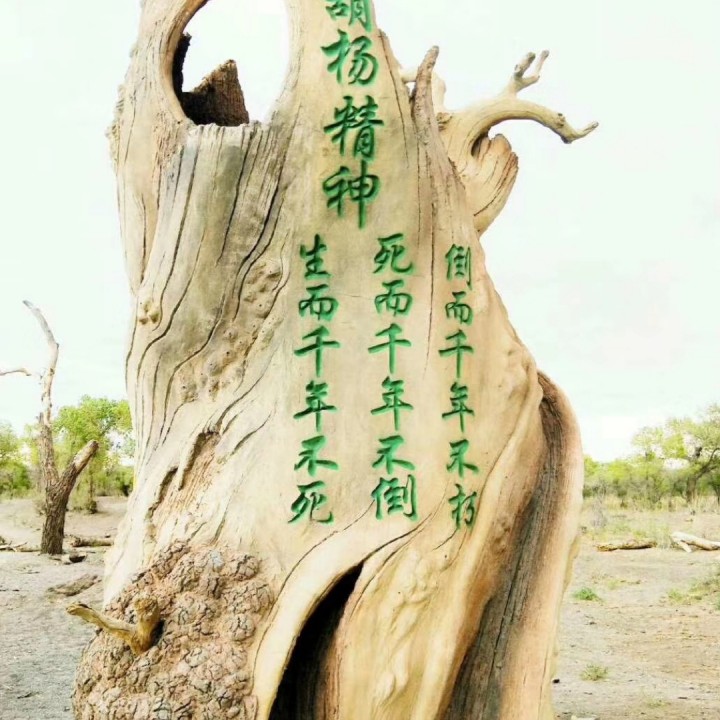 胡杨精神
生而千年不死
死而千年不倒
倒而千年不朽